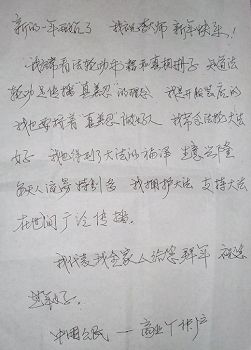 新的一年到来了 我祝李大师新年快乐!
我常看法轮功书籍和真相册子 知道法
轮功是传播"真善忍"的理念 我是开饭店的
我也要按着"真善忍"做好人 我常念法轮大法
好 我也得到了大法的福泽 生意兴隆
每天人流量特别多 我拥护大法 支持大法
在世间广泛传播。
我代表我全家人给您拜年 祝您
过年好。
中国公民——商业个体户